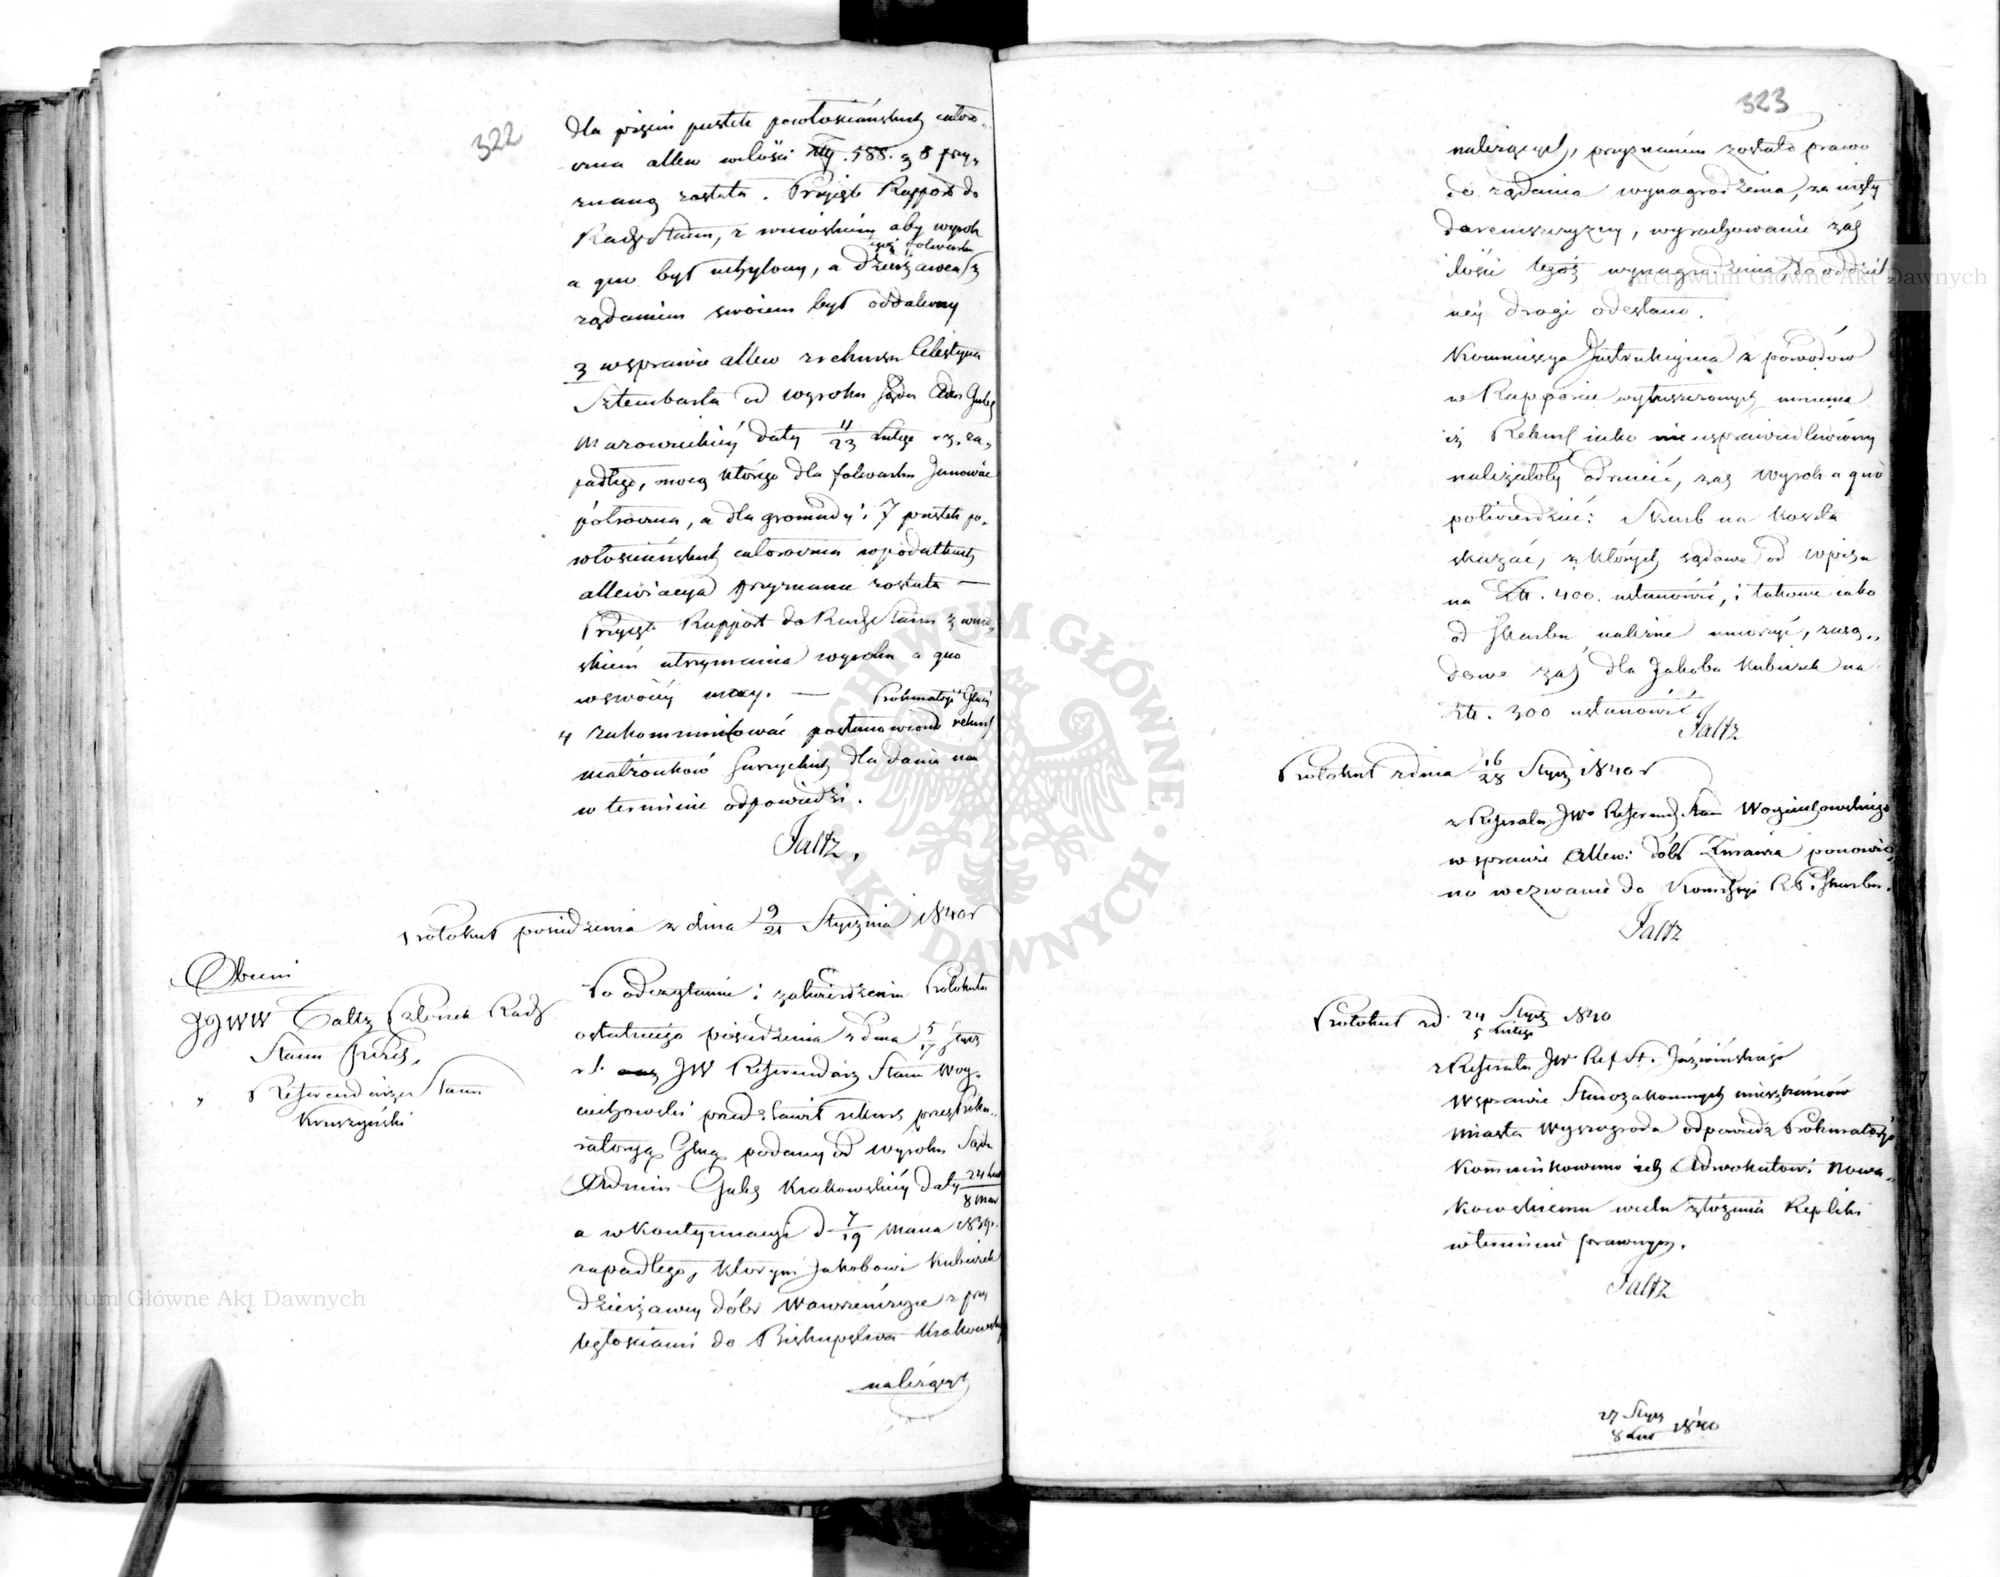 322
dla pięciu pustek powłościańskich cało-
roczna allew: w ilości Złtp. 588. g 8 przy-
znaną została. Przyjęto Rapport do
Rady Stanu, z wnioskiem aby wyrok
a quo był uchylony, a dzierżawca tegoż folwarku z
żądaniem swoiem był oddalony
3 w sprawie allew z rekursu Celestyna
Sztembarta od wyroku Sądu Adm Gube
Mazowieckiey daty 11/23 Lutego r. z. za-
padłego, mocą którego dla folwarku Janowiec
półroczna, a dla gromady i 7 pustek po-
włościańskich całoroczna w podatkach
allewiacya przyznana została —
Przyjęto Rapport do Rady Stanu z wnio-
skiem utrzymania wyroku a quo
w swoiey mocy. —
4 zakommunikować postanowiono Prokuratoryi Glney rekurs
małżonków dla dania na
w terminie odpowiedzi.
Faltz,
Protokuł posiedzenia z dnia 9/21 Stycznia 1840 r
Obecni
JJWW Faltz Członek Rady
Stanu Prezes,
" Referendarz Stanu
Kruszyński
Po odczytaniu i zatwierdzeniu Protokułu
ostatniego posiedzenia z dnia 5/17 Stycz
r. b. JW Referendarz Stanu Woy-
ciechowski przedstawił rekurs przez Proku-
ratoryą Glną podany od wyroku Sądu
Admin Gube Krakowskiey daty 24 Lut/8 Mar
a w kontynuacyi d 7/19 Marca 1839 r.
zapadłego, którym Jakobowi Kubiczek
dzierżawcy dóbr Wawrzeńczyce z przy
ległościami do Biskupstwa Krakowsk
należących
323
należących, przyznanem zostało prawo
do żądania wynagrodzenia, za
daremszczyzny, wyrachowanie zaś
ilości tegoż wynagrodzenia do oddziel
ney drogi odesłano.
Kommissya Instrukcyjna z powodów
w Rapporcie wyłuszczonych mniema
iż Rekurs iako nieusprawiedliwiony
należałoby odrzucić, zaś wyrok a quo
potwierdzić: Skarb na koszta
skazać, z których sądowe od wpisu
na Złt. 400. ustanowić, i takowe iako
od Skarbu należne umorzyć, zasą-
dowe zaś dla Jakóba Kubiczek na
Złt. 300 ustanowić.
Faltz
Protokuł z dnia 16/28 Stycz 1840 r
z Referatu JWo Referend. Stanu Woyciechowskiego
w sprawie Allew: dóbr Żurawia ponowio-
no wezwanie do Kommissyi R. P. i Skarbu.
Faltz
Protokuł z d. 24 Stycz/5 Lutego 1840
z Referatu JW Ref St. Jaźwińskiego
w sprawie Starozakonnych mieszkańców
miasta Wyszogroda odpowiedź Prokuratoryi
kommunikowano ich Adwokatowi Nowa-
kowskiemu w celu złożenia Repliki
w terminie prawnym.
Faltz
27 Stycz/8 Lut 1840
Archiwum Główne Akt Dawnych
Archiwum Główne Akt Dawnych
ARCHIWUM GŁÓWNE AKT DAWNYCH